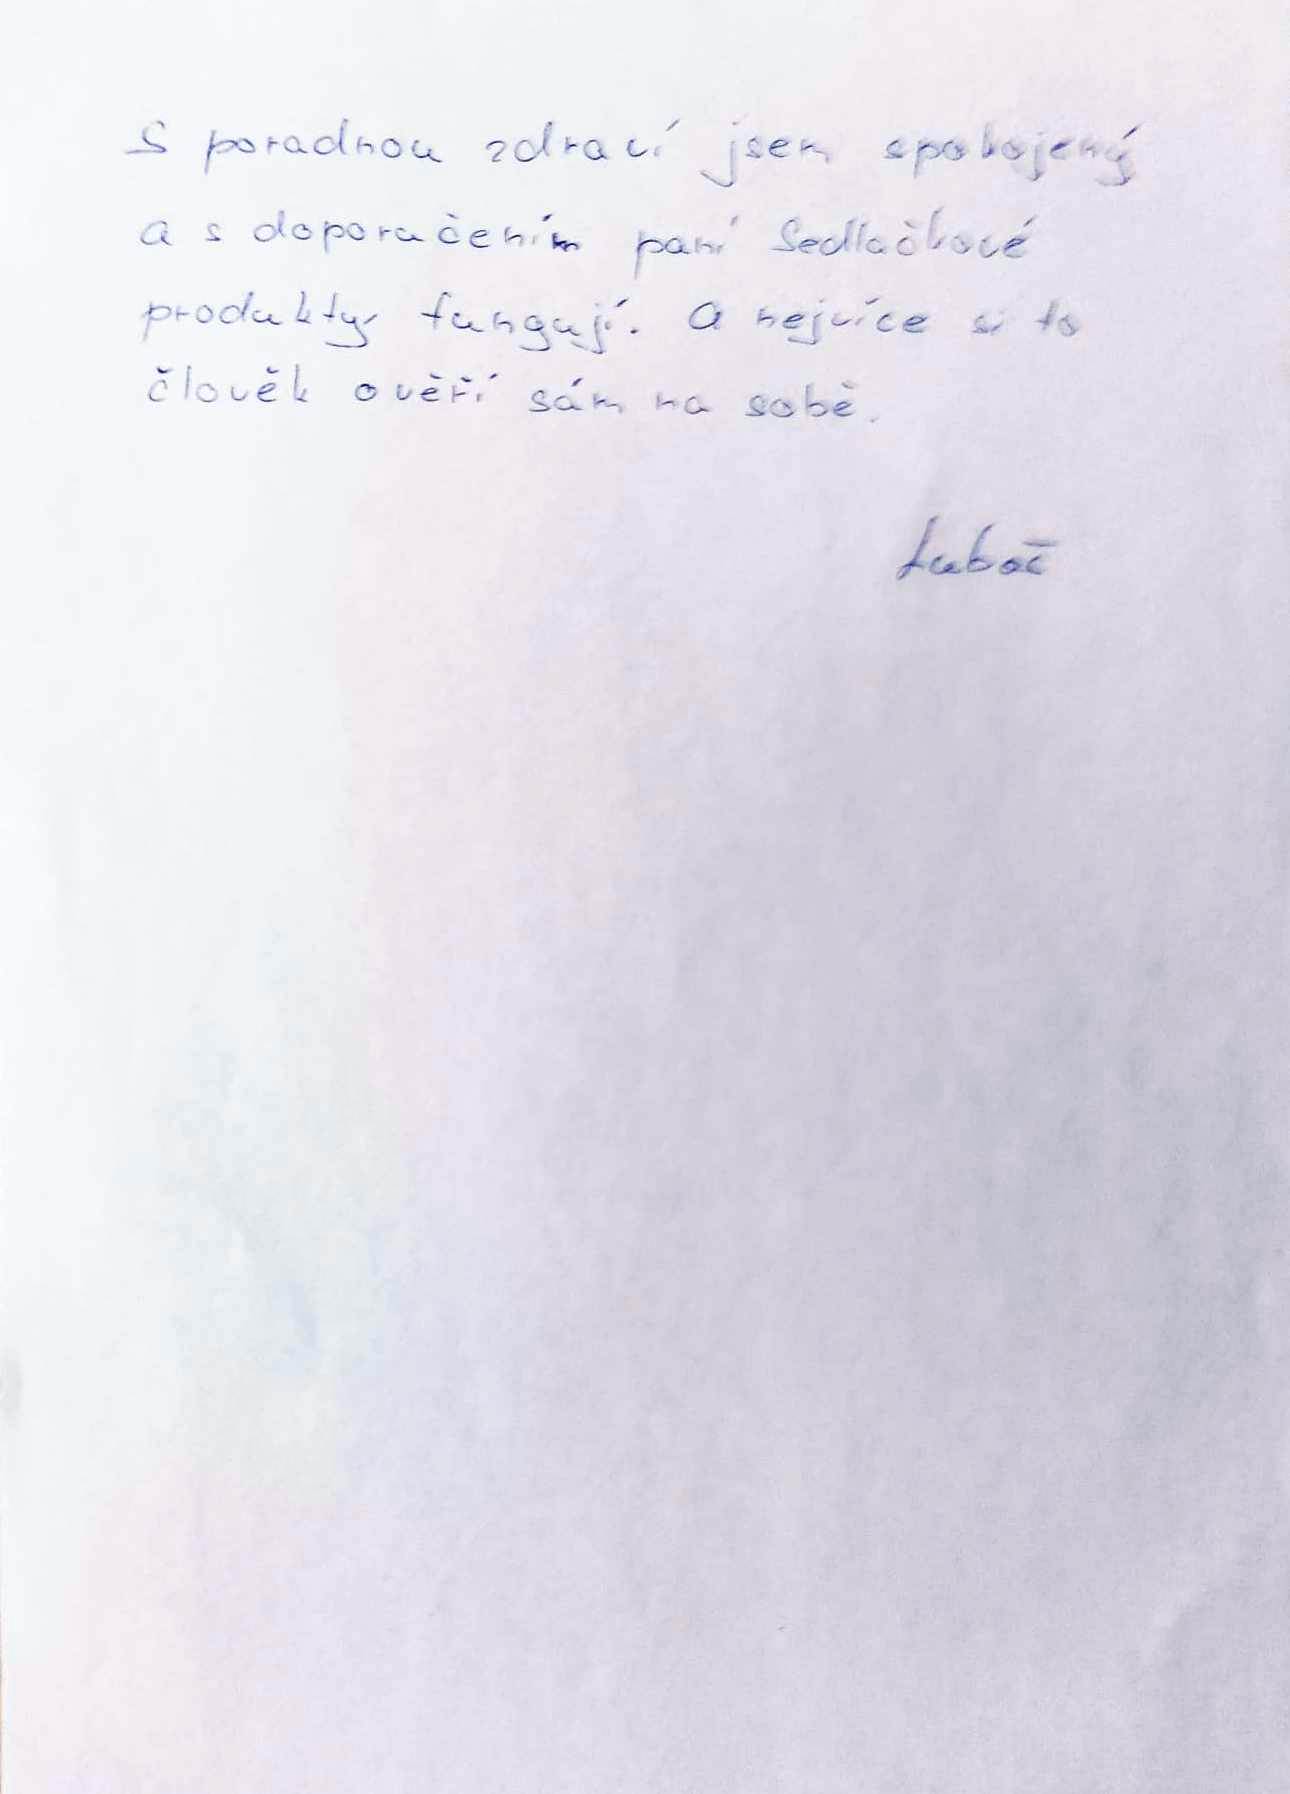 S poradnou zdraví jsem spokojený
a s doporučením paní Sedlačkové
produkty fungují. A nejvíce si to
člověk ověří sám na sobě.
Luboš